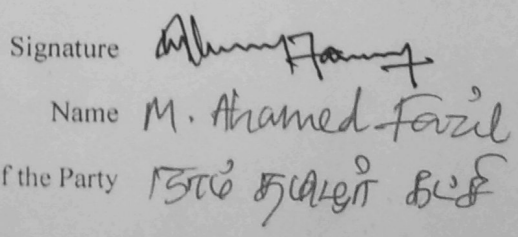 Signature
Name M. Ahamed Fazil
f the Party நாம் தமிழர் கட்சி